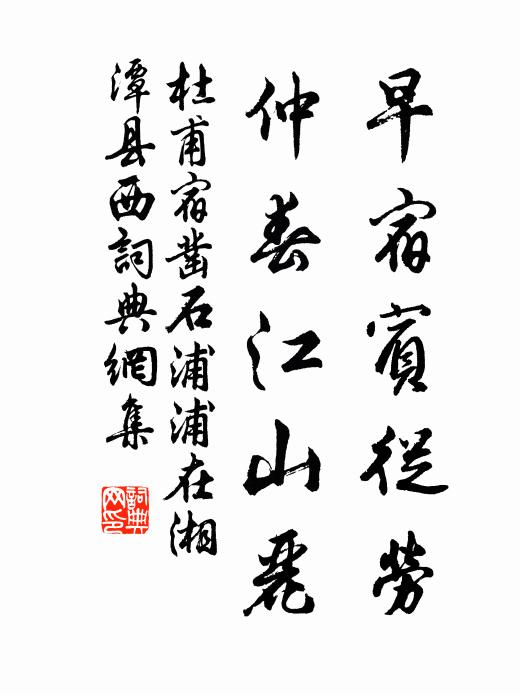 早宿賓從勞
仲春江山麗
杜甫宿凿石浦浦在湘
潭县西詞典網集
詞典网印